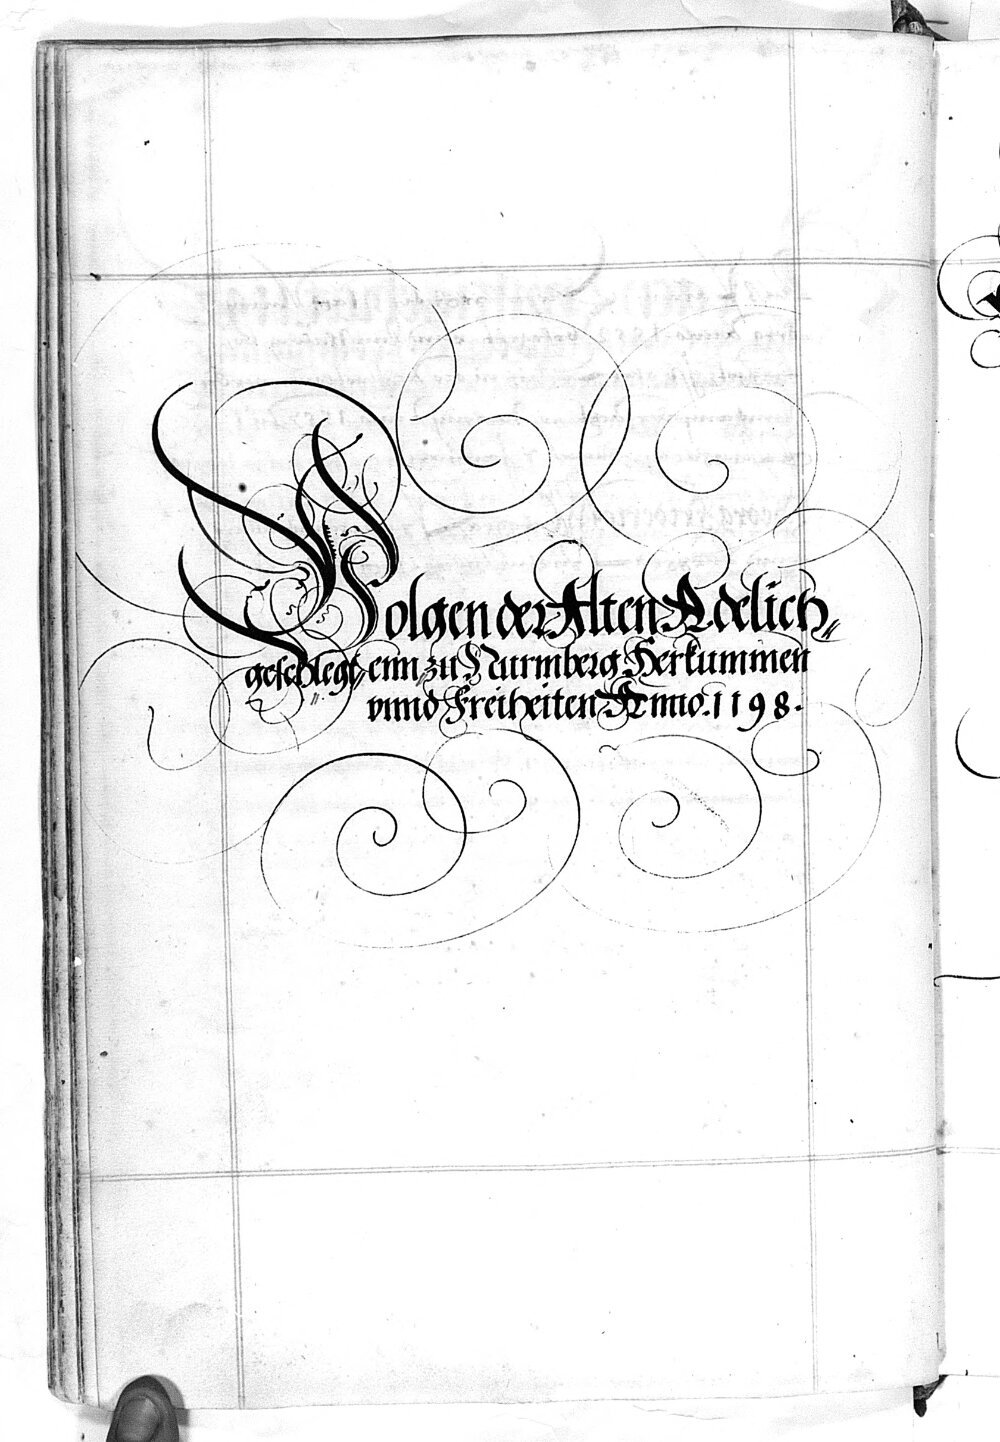 Volgen der Alten Adelich„
geschlegt„enn zu Nurmberg Herkummen
vnnd Freiheiten Anno. 1198.